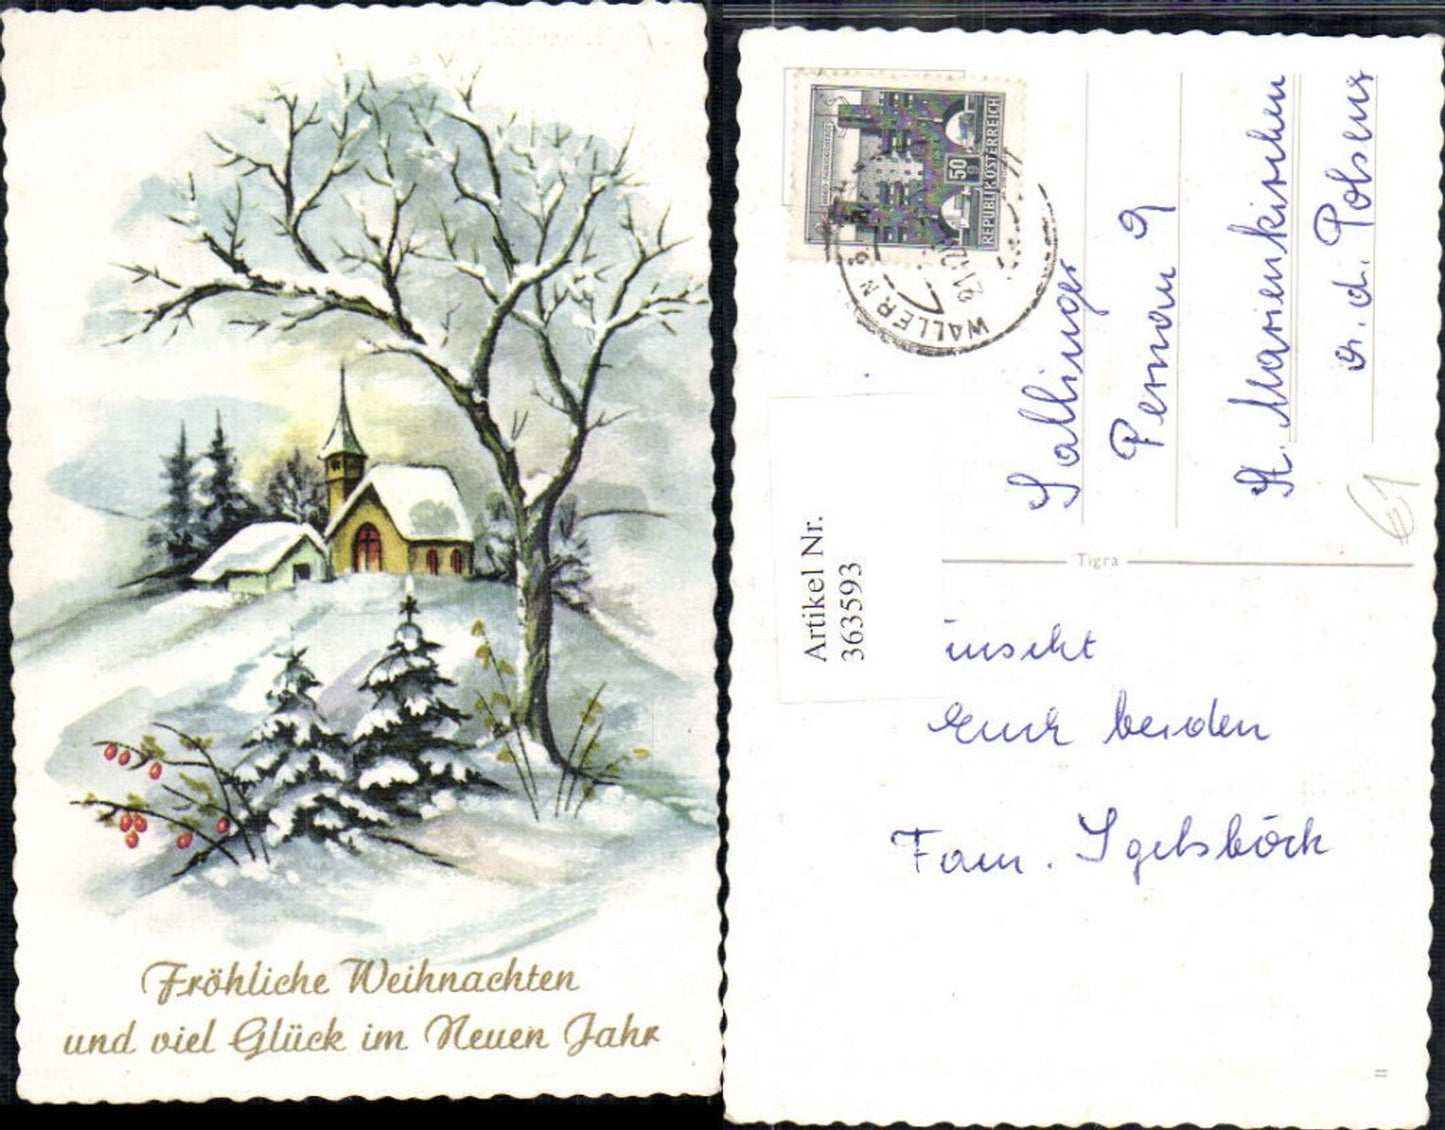 Fröhliche Weihnachten
und viel Glück im Neuen Jahr
REPUBLIK ÖSTERREICH
50
g
WALLERN
Sallinger
Pernau 9
St. Marienkirchen
a. d. Polsenz
€1
Tigra
Artikel Nr.
363593
wünscht
Euch beiden
Fam. Igelsböck